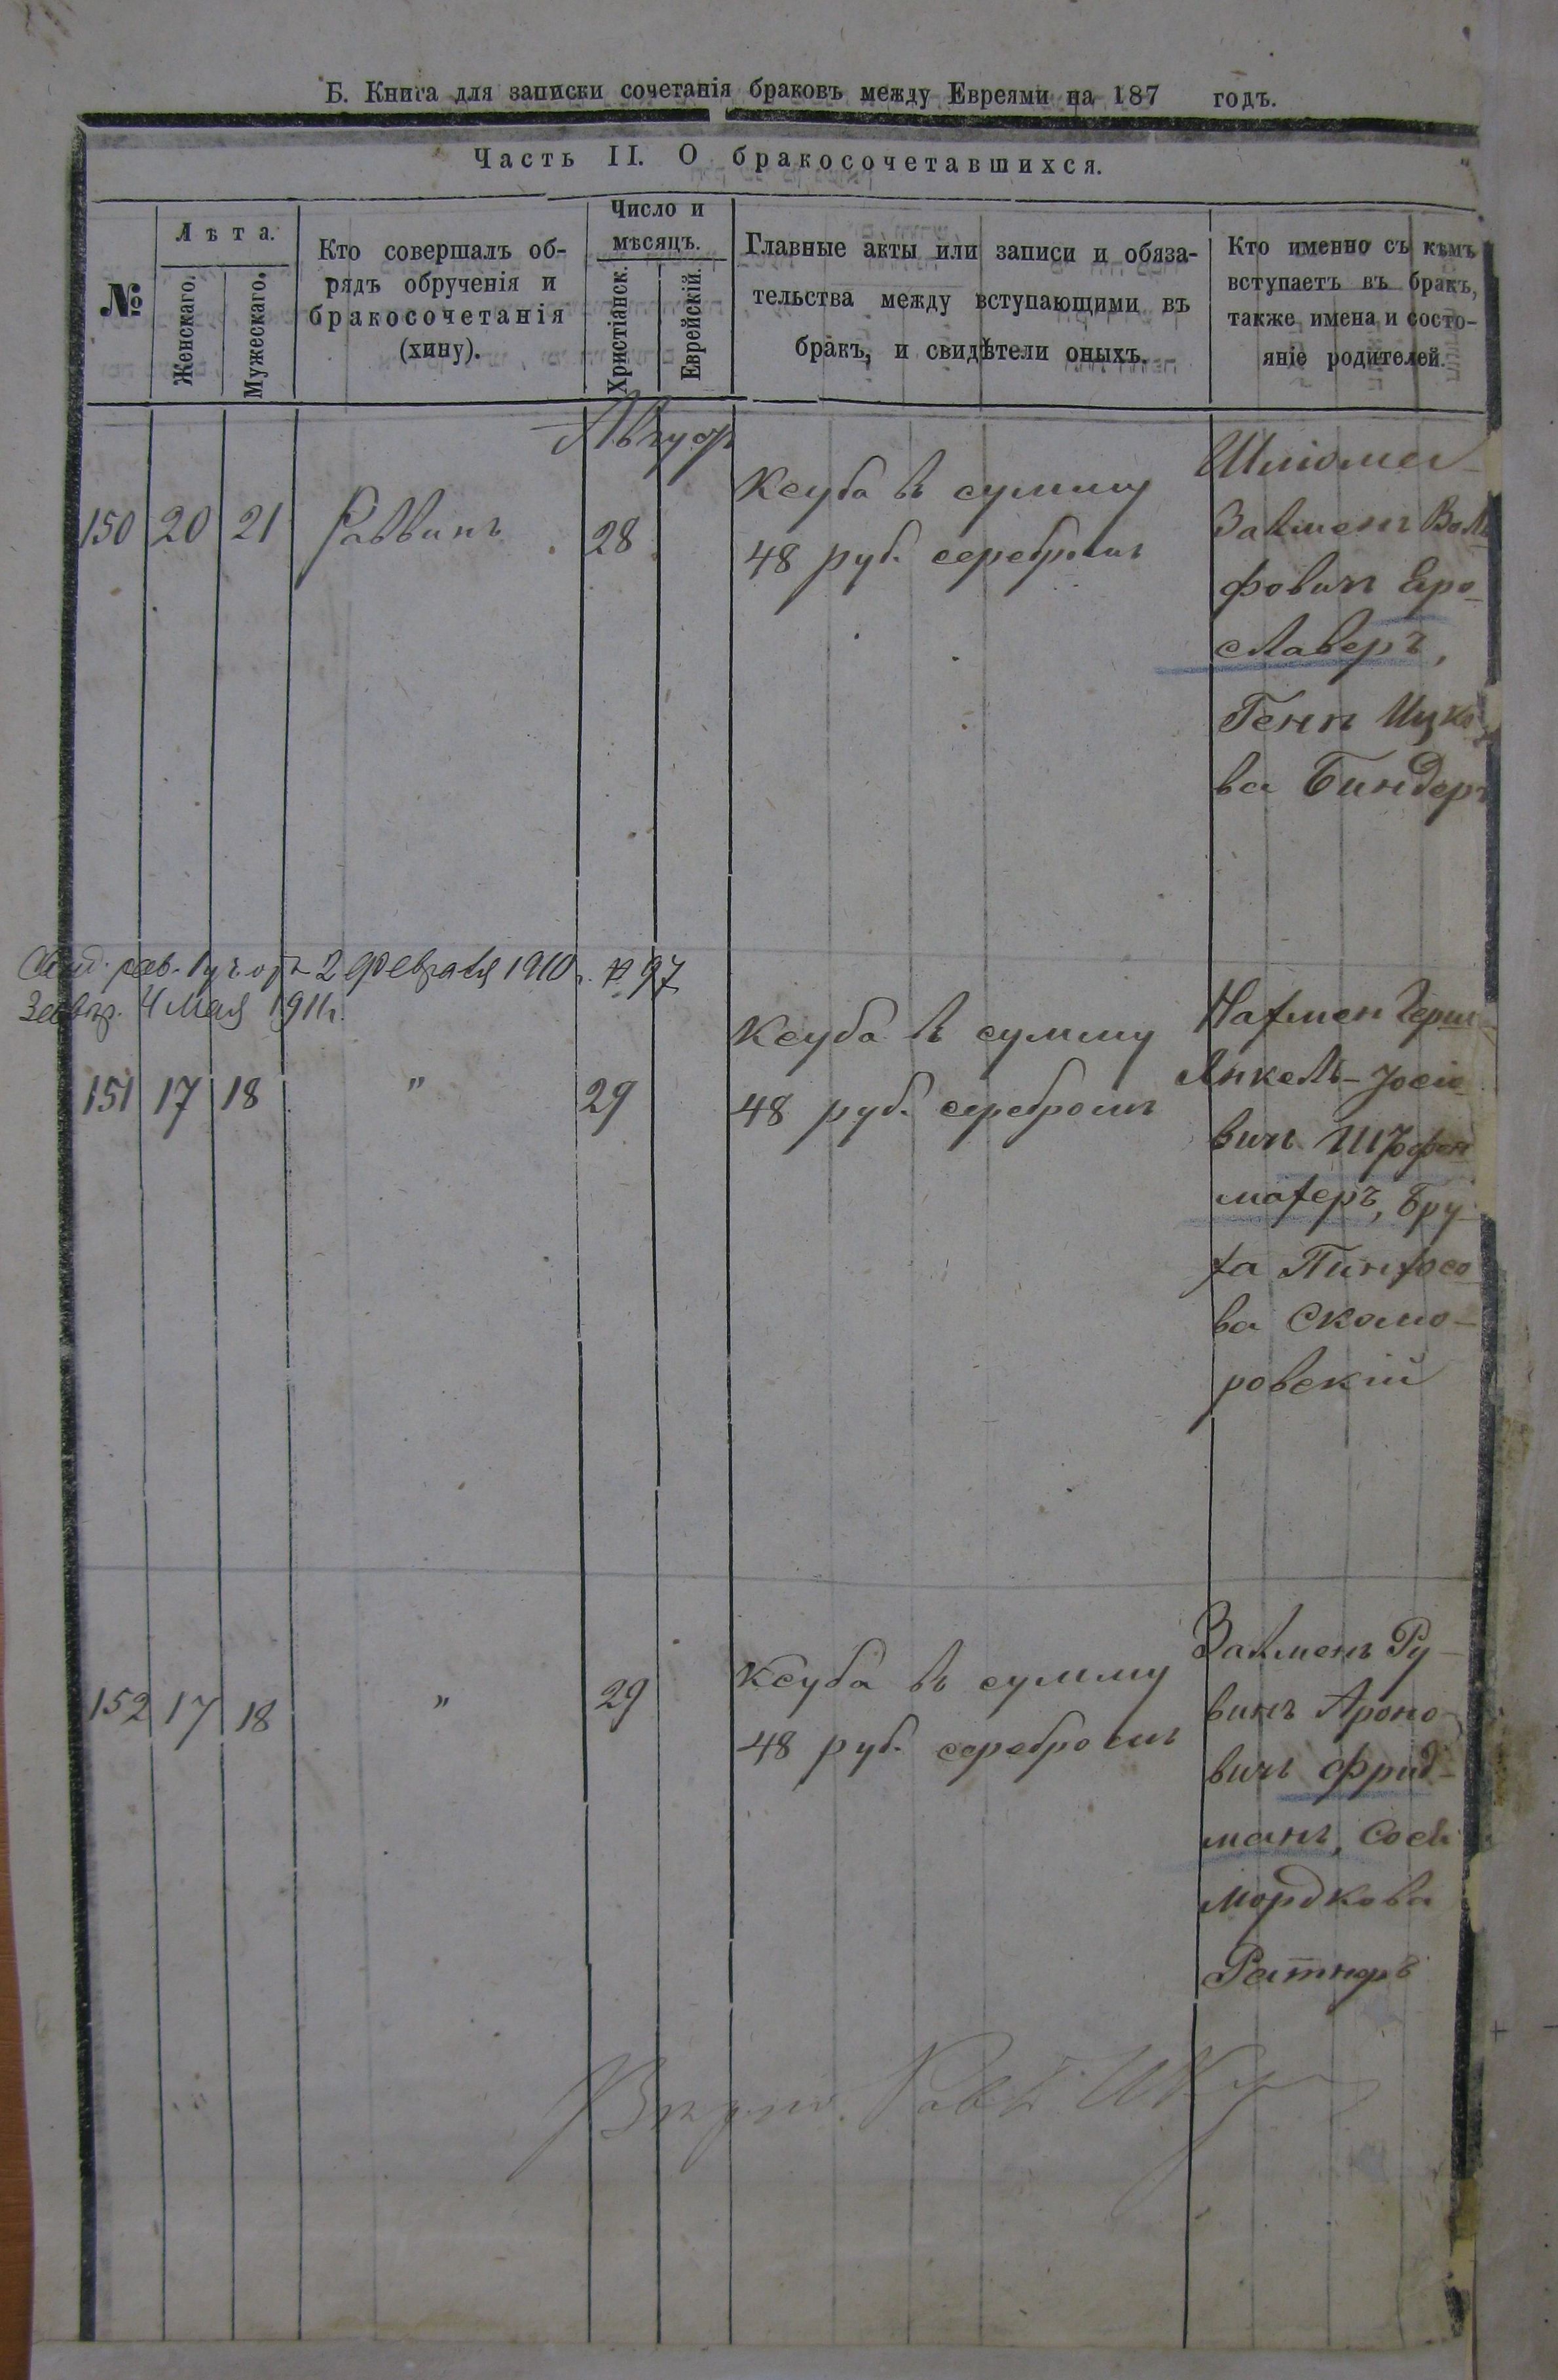 Б. Книга для записки сочетанія браковъ между Евреями на 187 годъ.
Часть II. О бракосочетавшихся.
№
Лѣта.
Женскаго.
Мужескаго.
Кто совершалъ об-
рядъ обрученія и
бракосочетанія
(хипу).
Число и
мѣсяцъ.
Христіанск.
Еврейскій.
Главные акты или записи и обяза-
тельства между вступающими въ
бракъ, и свидѣтели оныхъ.
Кто именно съ кѣмъ
вступаетъ въ бракъ,
также имена и состо-
яніе родителей.
Августъ
150 20 21 Раввинъ 28
Ксуба въ сумму
48 руб. серебромъ
Шліома
Залменъ Воль
фовичъ Еро-
славеръ,
Генп Ицко
ва Биндеръ
2 февраля 1910 г. № 97
4 мая 1911 г.
151 17 18 " 29
Ксуба въ сумму
48 руб. серебромъ
Нахмен Герш
Янкель-Іосіо
вичъ
махеръ, Бру
ха Пинхосо
ва Скомо-
ровскій
152 17 18 " 29
Ксуба въ сумму
48 руб. серебромъ
Залменъ Ру-
винъ Ароно
вичъ Фрид-
манъ, Сося
Мордкова
Ратнеръ